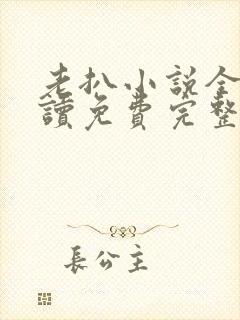 老扒小说全
讀免費完整
長公主